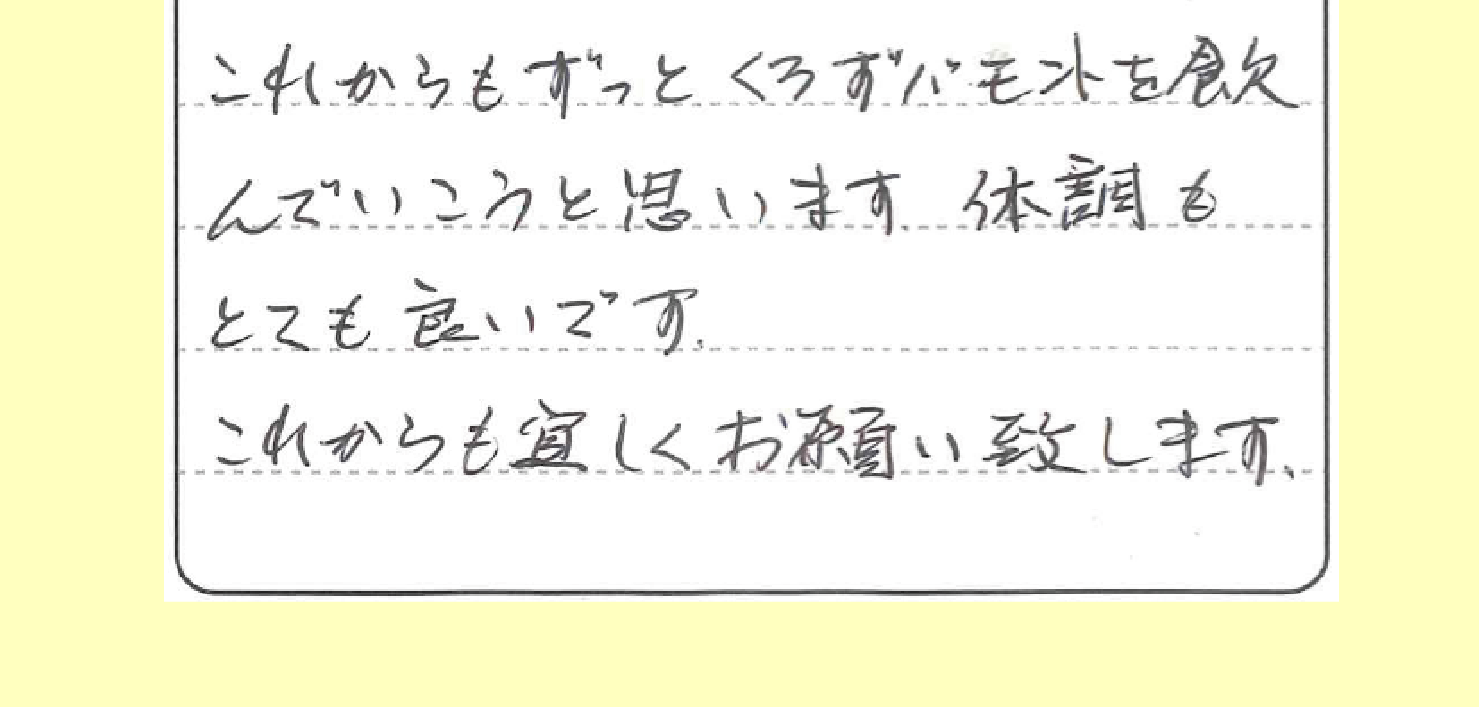 これからもずっとくろずバーモントを飲
んでいこうと思います。体調も
とても良いです。
これからも宜しくお願い致します。